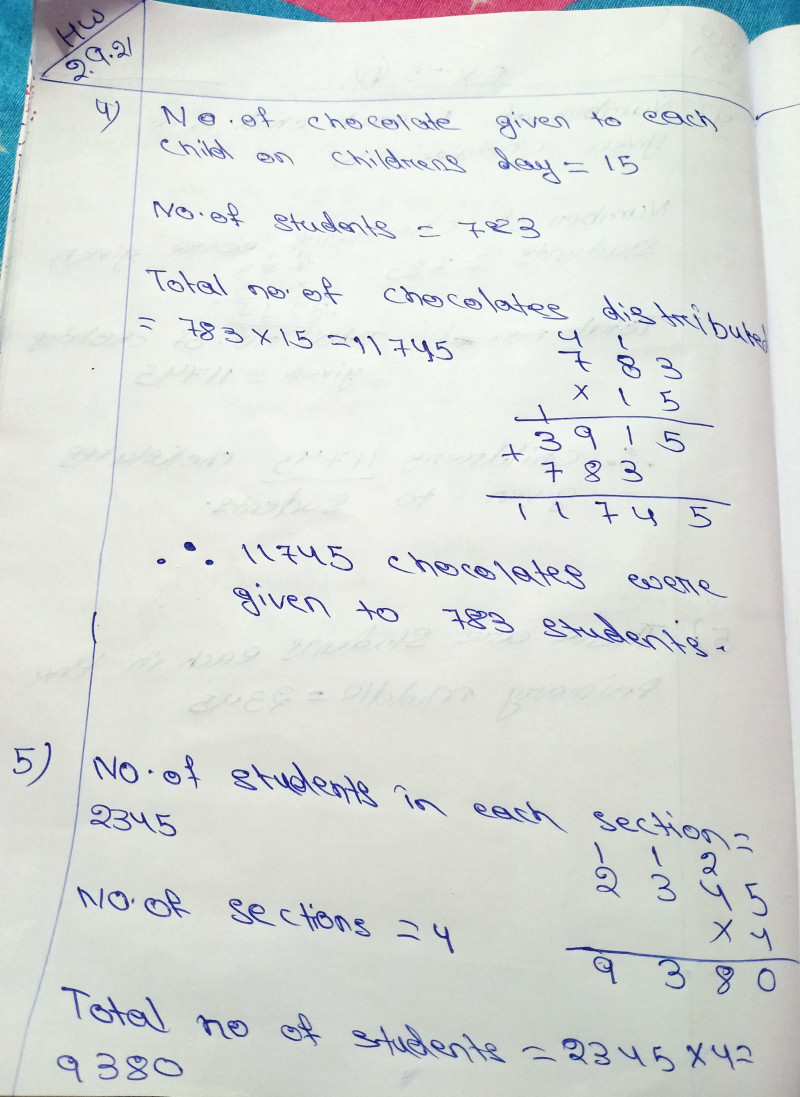 HW
2.9.21
4) No. of chocolate given to each
child on childrens day = 15
No. of students = 783
Total no. of chocolates distributed
= 783 × 15 = 11745
4 1
7 8 3
× 1 5
1
+ 3 9 1 5
7 8 3
1 1 7 4 5
∴ 11745 chocolates were
given to 783 students.
5) No. of students in each section =
2345
1 1 2
2 3 4 5
× 4
9 3 8 0
No. of sections = 4
Total no of students = 2345 × 4 =
9380